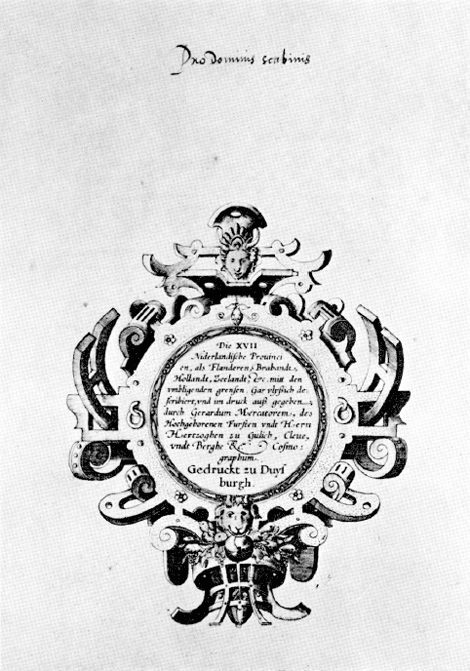 Pro dominis scabinis
Die XVII
Niderlandische Prouinci
en, als Flanderen, Brabandt,
Hollandt, Zeelandt, &c. mit den
vmbligenden grensen. Gar vlyssich de⸗
scribiert, vnd im druck auß gegeben
durch Gerardum Mercatorem, des
Hochgeborenen Fursten vndt Hern
Hertzoghen zu Gulich, Cleue,
vndt Berghe &c Cosmo:
graphum.
Gedruckt zu Duys
burgh.